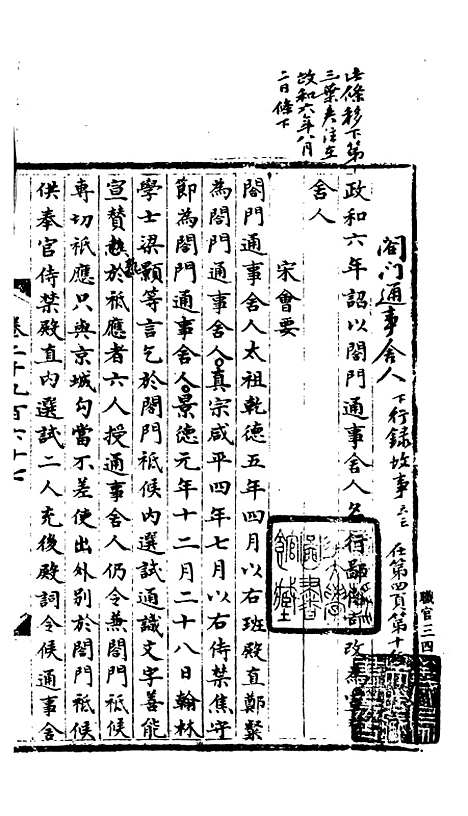 職官三四
閤門通事舍人 下行錄故事 在第四頁第十
政和六年詔以閤門通事舍人名行鄙 改為宣
舍人
此條移下第十
三葉夾注在
政和六年八月
二日條下
宋會要
閤門通事舍人太祖乾德五年四月以右班殿直鄭粲
為閤門通事舍人真宗咸平四年七月以右侍禁焦守
節為閤門通事舍人景德元年十二月二十八日翰林
學士梁顥等言乞於閤門祗候內選試通識文字善能
宣贊熟於祗應者六人授通事舍人仍令兼閤門祗候
專切祗應只與京城勾當不差使出外別於閤門祗候
供奉官侍禁殿直內選試二人充後殿詞令候通事舍
卷二千九百六十七